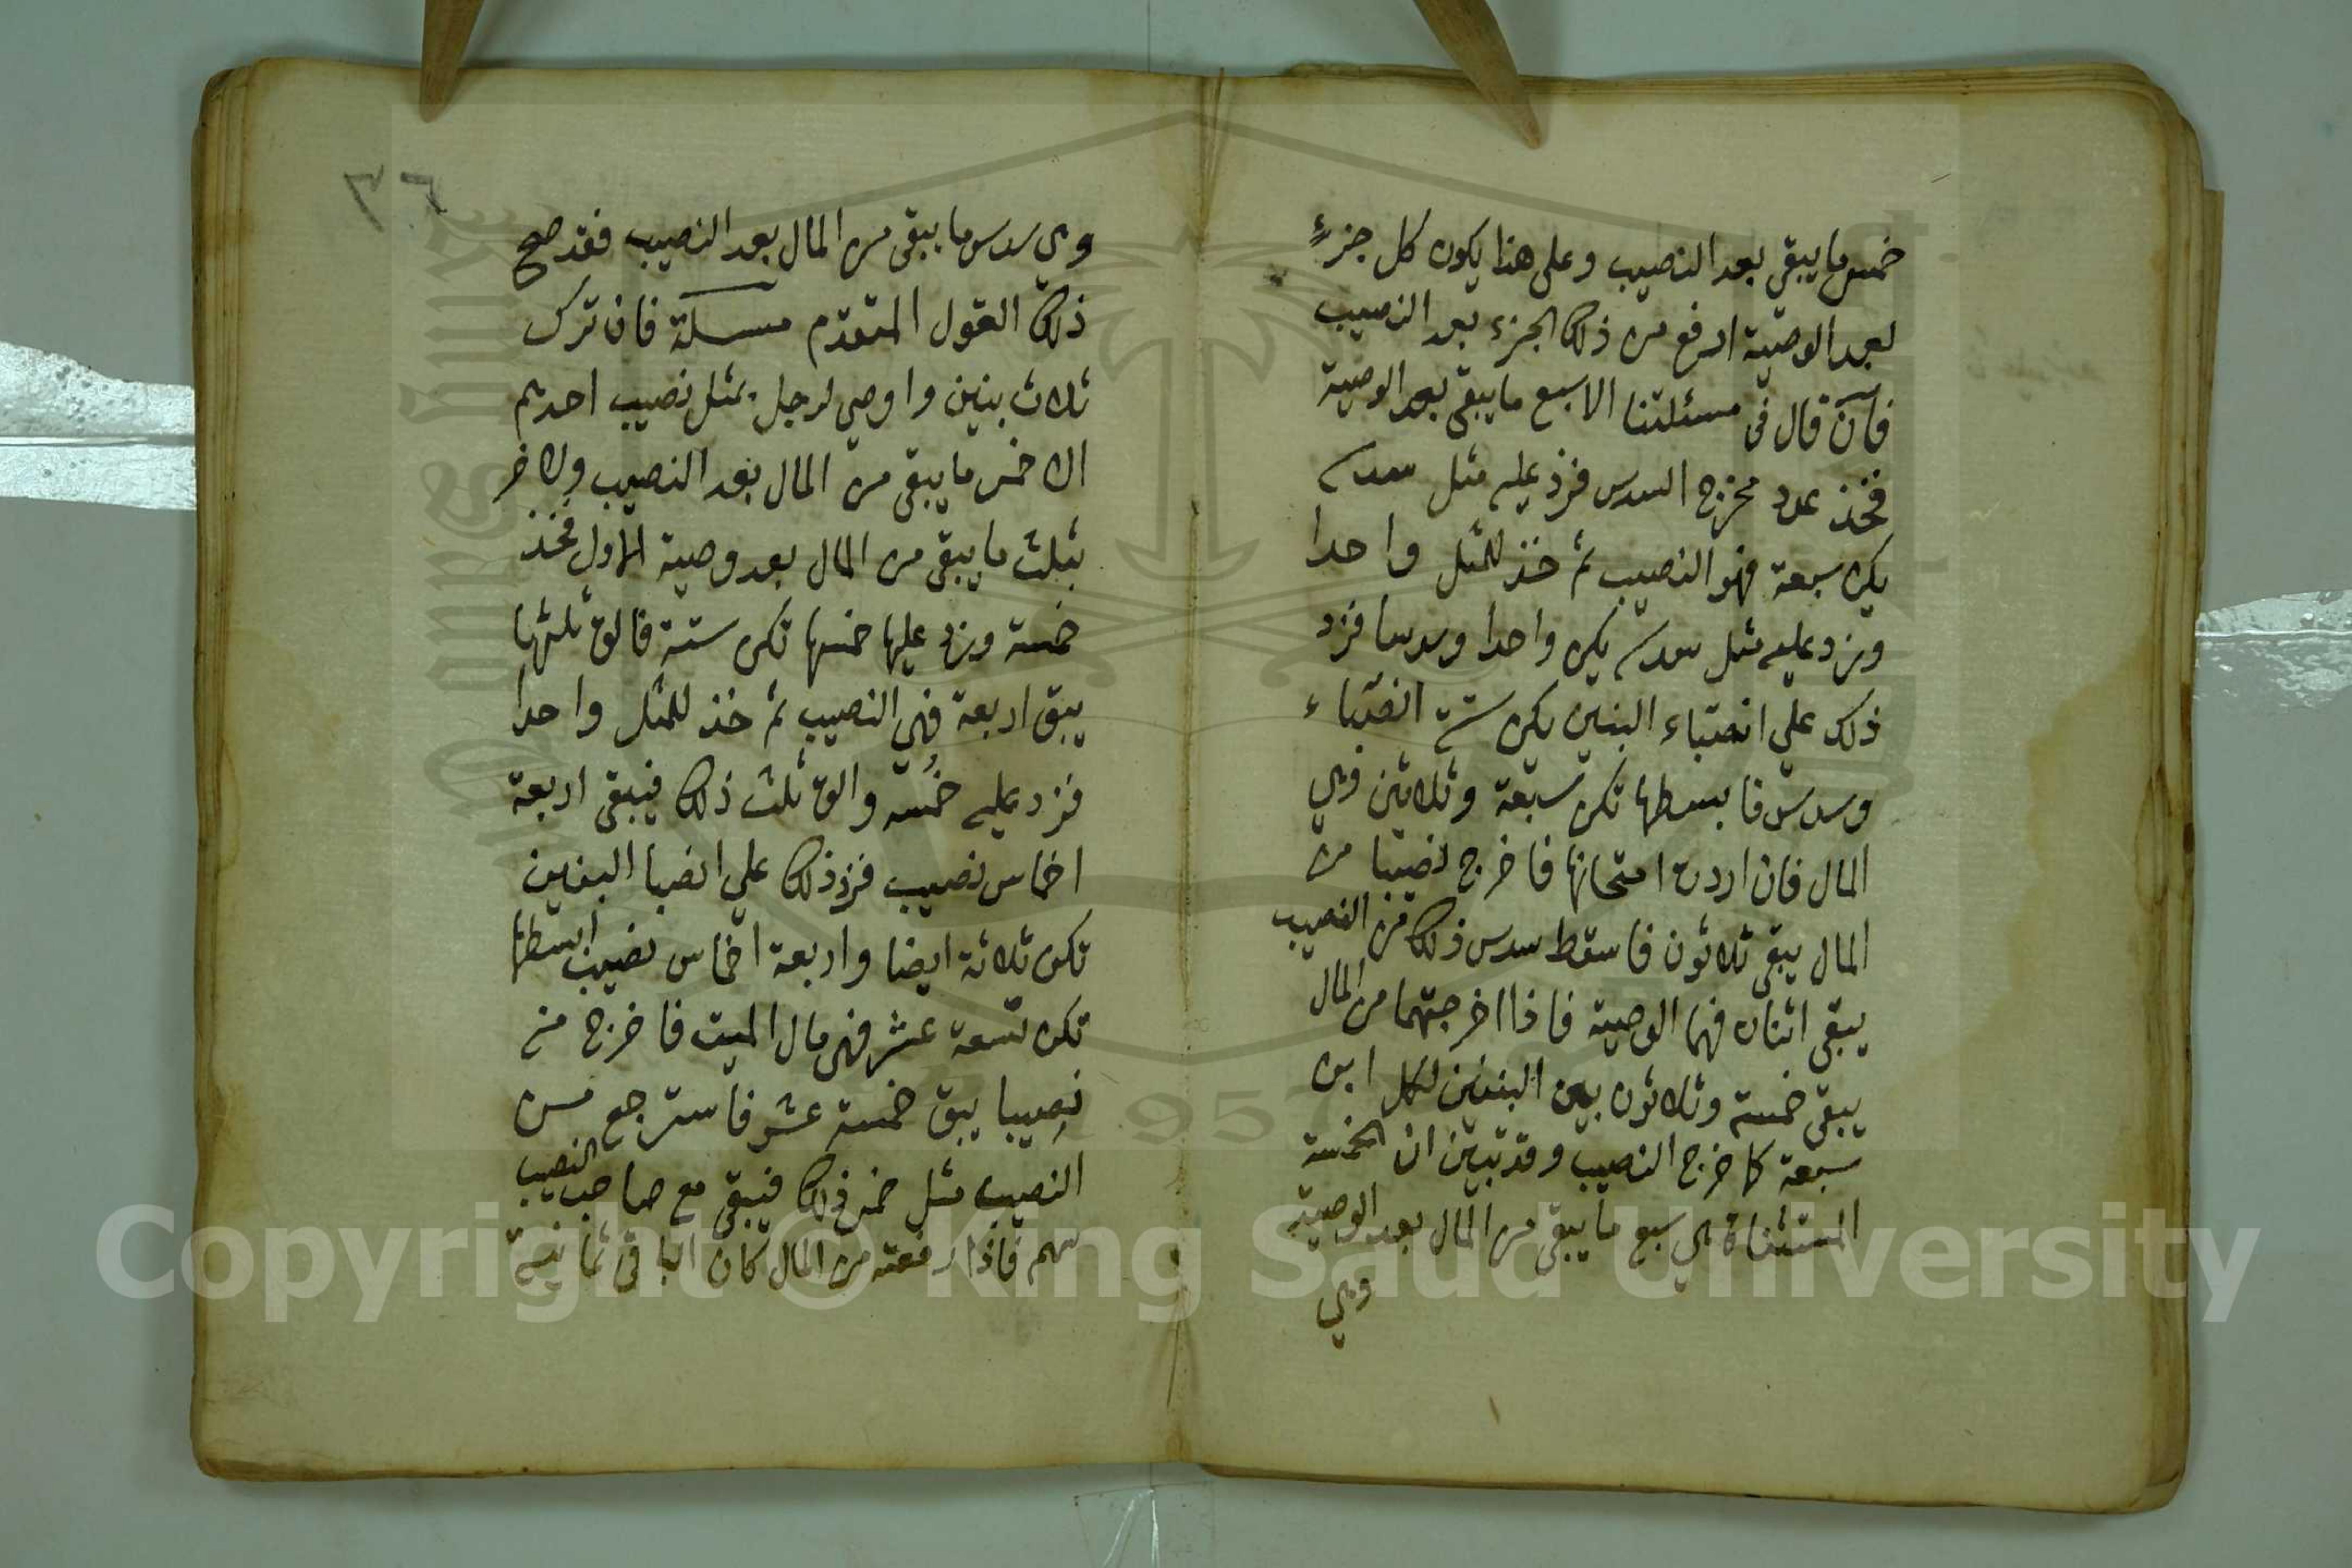 خمس ما يبقى بعد النصيب وعلى هذا يكون كل جزءٍ
بعد الوصية ارفع من ذلك الجزء بعد النصيب
فان قال في مسئلتنا الا سبع ما يبقى بعد الوصية
فخذ عدد مخرج السدس فزد عليه مثل سدسه
يكن سبعة فهو النصيب ثم خذ للمثل واحدا
وزد عليه مثل سدسه يكن واحدا وسدسا فزد
ذلك على انصباء البنين يكن ستة انصباء
وسدس فابسطها تكن سبعة وثلاثين وهي
المال فان اردت امتحانها فاخرج نصيبا من
المال يبقى ثلاثون فاسقط سدس ذلك من النصيب
يبقى اثنان فهما الوصية فاذا اخرجتهما من المال
يبقى خمسة وثلاثون بين البنين لكل ابن
سبعة كما خرج النصيب وقد تبين ان الخمسة
المستثناة هي سبع ما يبقى من المال بعد الوصية
وهي
٢٦
وهي سدس ما يبقى من المال بعد النصيب فقد صح
ذلك القول المتقدم مسئلة فان ترك
ثلاث بنين واوصي لرجل بمثل نصيب احدهم
الا خمس ما يبقى من المال بعد النصيب ولاخر
بثلث ما يبقى من المال بعد وصية الاول فخذ
خمسة وزد عليها خمسها تكن ستة فالق ثلثها
يبق اربعة فهي النصيب ثم خذ للمثل واحدا
فزد عليه خُمسه والق ثلث ذلك فيبقى اربعة
اخماس نصيب فزد ذلك على انصبا البنين
تكن ثلاثة ايضا واربعة اخماس نصيب ابسطها
تكن تسعة عشر فهي مال الميت فاخرج منه
نصيبا يبق خمسة عشر فاسترجع من
النصيب مثل خمس ذلك فيبقى مع صاحب النصيب
سهم فاذا رفعته من المال كان الباقي ثمانية
Copyright © King Saud University
1957